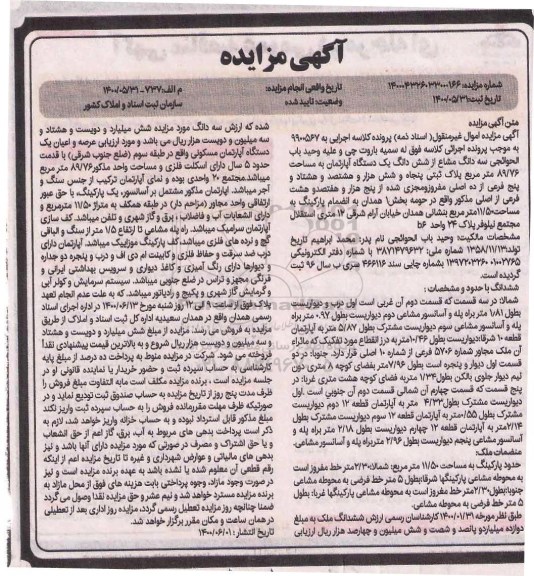 آگهی مزایده
شماره مزایده: ۱۴۰۰۰۴۳۲۶۰۳۳۰۰۰۱۶۶
تاریخ ثبت: ۱۴۰۰/۰۵/۳۱
تاریخ واقعی انجام مزایده:
وضعیت: تایید شده
م الف: ۷۳۷- ۱۴۰۰/۰۵/۳۱
سازمان ثبت اسناد و املاک کشور
متن آگهی مزایده
آگهی مزایده اموال غیرمنقول( اسناد ذمه) پرونده کلاسه اجرایی به ۹۹۰۰۵۶۷
به موجب پرونده اجرائی کلاسه فوق له سمیه باروت چی و علیه وحید باب
الحوائجی سه دانگ مشاع از شش دانگ یک دستگاه آپارتمان به مساحت
۸۹/۷۶ متر مربع پلاک ثبتی پنجاه و شش هزار و هشتصد و هشتاد و
پنج فرعی از ده اصلی مفروزومجزی شده از پنج هزار و هفتصدو هشت
فرعی از اصلی مذکور واقع در حومه بخش۱ همدان به انضمام پارکینگ به
مساحت۱۱/۵متر مربع بنشانی همدان خیابان آرام شرقی ۱۲ متری استقلال
مجتمع نیلوفر پلاک ۲۴ واحد b۶
مشخصات مالکیت: وحید باب الحوائجی نام پدر: محمد ابراهیم تاریخ
تولد:۱۳۵۸/۱۱/۱۳ شماره ملی: ۳۸۷۱۴۷۹۶۳۲ با شماره دفتر الکترونیکی
۱۳۹۷۲۰۳۲۶۰۰۱۰۰۲۷۶۵ بشماره چاپی سند ۴۶۶۱۱۶ سری ب سال ۹۶ ثبت
گردیده است.
ششدانگ با حدود و مشخصات :
شمالا: در سه قسمت که قسمت دوم آن غربی است اول درب و دیواریست
بطول ۱/۸۱ متر براه پله و آسانسور مشاعی دوم دیواریست بطول ۰/۹۲ متر براه
پله و آسانسور مشاعی سوم دیواریست مشترک بطول ۵/۸۷ متر به آپارتمان
قطعه ۱۰ شرقا: دیواریست بطول ۱۰/۴۶متر به درز انقطاع مورد تفکیک که ماورای
آن ملک مجاور شماره ۵۷۰۶ فرعی از شماره ۱۰ اصلی قرار دارد. جنوبا: در دو
قسمت اول دیوار و پنجره است بطول ۷/۹۶متر بفضای کوچه ۸ متری دون
نیم دیوار جلوی بالکن بطول ۱/۳۴متر به فضای کوچه هشت متری غربا: در
پنج قسمت که قسمت چهارم آن شمالی قسمت دوم آن جنوبی است .اول
دیواریست مشترک بطول ۴/۳۳متر به آپارتمان قطعه ۱۲ دوم دیواریست
مشترک بطول ۰/۵۵متر به آپارتمان قطعه ۱۲ سوم دیواریست مشترک بطول
۲/۱۴متر به آپارتمان قطعه ۱۲ چهارم دیواریست بطول ۲/۱۸ متر براه پله و
آسانسور مشاعی پنجم دیواریست بطول ۲/۹۶ متر براه پله و آسانسور مشاعی.
منضمات ملک:
حدود پارکینگ به مساحت ۱۱/۵۰ متر مربع: شمالا:۲/۳۰متر خط مفروز است
به محوطه مشاعی پارکینگها شرقا:بطول ۵ متر خط فرضی به محوطه مشاعی
جنوبا:بطول۲/۳۰متر خط مفروز است به محوطه مشاعی پارکینگها غربا: بطول
۵ متر خط فرضی به محوطه مشاعی.
طبق نظر مورخه ۱۴۰۰/۰۱/۳۱ کارشناسان رسمی ارزش ششدانگ ملک به مبلغ
دوازده میلیاردو پانصد و شصت و شش میلیون و چهارصد هزار ریال ارزیابی
شده که ارزش سه دانگ مورد مزایده شش میلیارد و دویست و هشتاد و
سه میلیون و دویست هزار ریال می باشد و مورد ارزیابی عرصه و اعیان یک
دستگاه آپارتمان مسکونی واقع در طبقه سوم (ضلع جنوب شرقی) با قدمت
حدود ۵ سال دارای اسکلت فلزی و مساحت واحد مذکور۸۹/۷۶ متر مربع
میباشد.مجتمع ۲۰ واحدی بوده و نمای آپارتمان ترکیب از جنس سنگ و
آجر میباشد. آپارتمان مذکور مشتمل بر آسانسور، یک پارکینگ، با حق عبور
ارتفاقی واحد مجاور (مزاحم دار) در طبقه همکف به متراژ ۱۱/۵۰ مترمربع و
دارای انشعابات آب و فاضلاب ، برق و گاز شهری و تلفن میباشد. کف سازی
آپارتمان سرامیک میباشد. راه پله مشاعی تا ارتفاع ۱/۵ متر از سنگ و الباقی
گچ و نرده های فلزی میباشد، کف پارکینگ موزاییک میباشد. آپارتمان دارای
درب ضد سرقت و حفاظ فلزی و کابینت ام دی اف و درب و پنجره دو جداره
و دیوارها دارای رنگ آمیزی و کاغذ دیواری و سرویس بهداشتی ایرانی و
فرنگی مجهز و تراس در ضلع جنوبی میباشد. سیستم سرمایش و کولر آبی
و گرمایش گاز شهری و پکیج و رادیاتور میباشد. که به علت عدم انجام تعهد
پلاک فوق از ساعت ۹ الی ۱۲ روز شنبه مورخ ۱۴۰۰/۰۶/۱۳ در اداره اجرای اسناد
رسمی همدان واقع در همدان سعیدیه اداره کل ثبت اسناد و املاک از طریق
مزایده به فروش می رسد. مزایده از مبلغ شش میلیارد و دویست و هشتاد
و سه میلیون و دویست هزار ریال شروع و به بالاترین قیمت پیشنهادی نقداً
فروخته می شود. شرکت در مزایده منوط به پرداخت ده درصد از مبلغ پایه
کارشناسی به حساب سپرده ثبت و حضور خریدار یا نماینده قانونی او در
جلسه مزایده است ، برنده مزایده مکلف است مابه التفاوت مبلغ فروش را
ظرف مدت پنج روز از تاریخ مزایده به حساب صندوق ثبت تودیع نماید و در
صورتیکه ظرف مهلت مقرر مانده فروش را به حساب سپرده ثبت واریز نکند
مبلغ مذکور قابل استرداد نبوده و به حساب خزانه واریز خواهد شد، لازم به
ذکر است پرداخت بدهی های مربوط به آب، برق، گاز اعم از حق انشعاب
و یا حق اشتراک و مصرف در صورتی که مورد مزایده دارای آنها باشد و نیز
بدهی های مالیاتی و عوارض شهرداری و غیره تا تاریخ مزایده اعم از اینکه
رقم قطعی آن معلوم شده یا نشده باشد به عهده برنده مزایده است و نیز
در صورت وجود مازاد، وجوه پرداختی بابت هزینه های فوق از محل مازاد به
برنده مزایده مسترد خواهد شد و نیم عشر و حق مزایده نقدا وصول می گردد
ضمنا چنانچه روز مزایده تعطیل رسمی گردد، مزایده روز اداری بعد از تعطیلی
در همان ساعت و مکان مقرر برگزار خواهد شد.
تاریخ انتشار : ۱۴۰۰/۰۶/۰۱